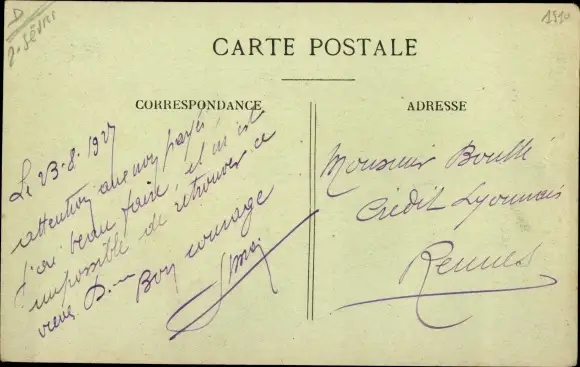 D
1910
CARTE POSTALE
CORRESPONDANCE
ADRESSE
Le 23-8-1927
attention
j'ai beau faire, il m'est
impossible de retrouver ce
vieux D.... Bon courage
Monsieur Boullé
Crédit Lyonnais
Rennes